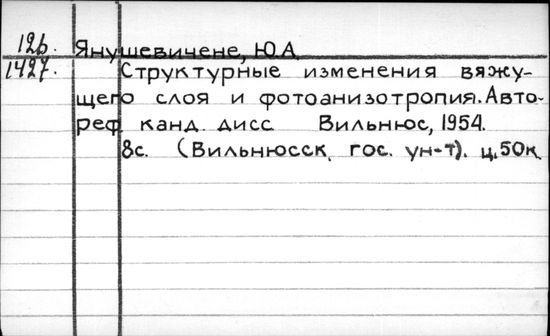 126. Янушевичене, Ю.А.
1427. Структурные изменения вяжу-
щего слоя и фотоанизотропия. Авто-
реф. канд. дисс. Вильнюс, 1954.
8с. (Вильнюсск. гос. ун-т). ц. 50к.